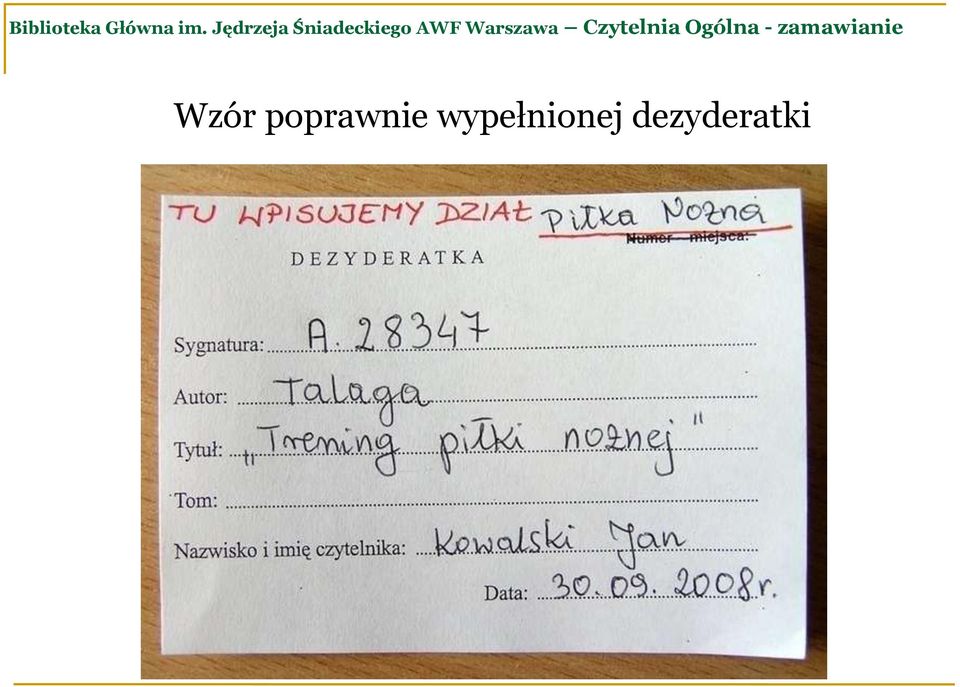 Biblioteka Główna im. Jędrzeja Śniadeckiego AWF Warszawa – Czytelnia Ogólna - zamawianie
Wzór poprawnie wypełnionej dezyderatki
TU WPISUJEMY DZIAŁ Piłka Nożna
Numer miejsca:
DEZYDERATKA
Sygnatura: A. 28347
Autor: Talaga
Tytuł: „Trening piłki nożnej"
Tom:
Nazwisko i imię czytelnika: Kowalski Jan
Data: 30.09.2008r.